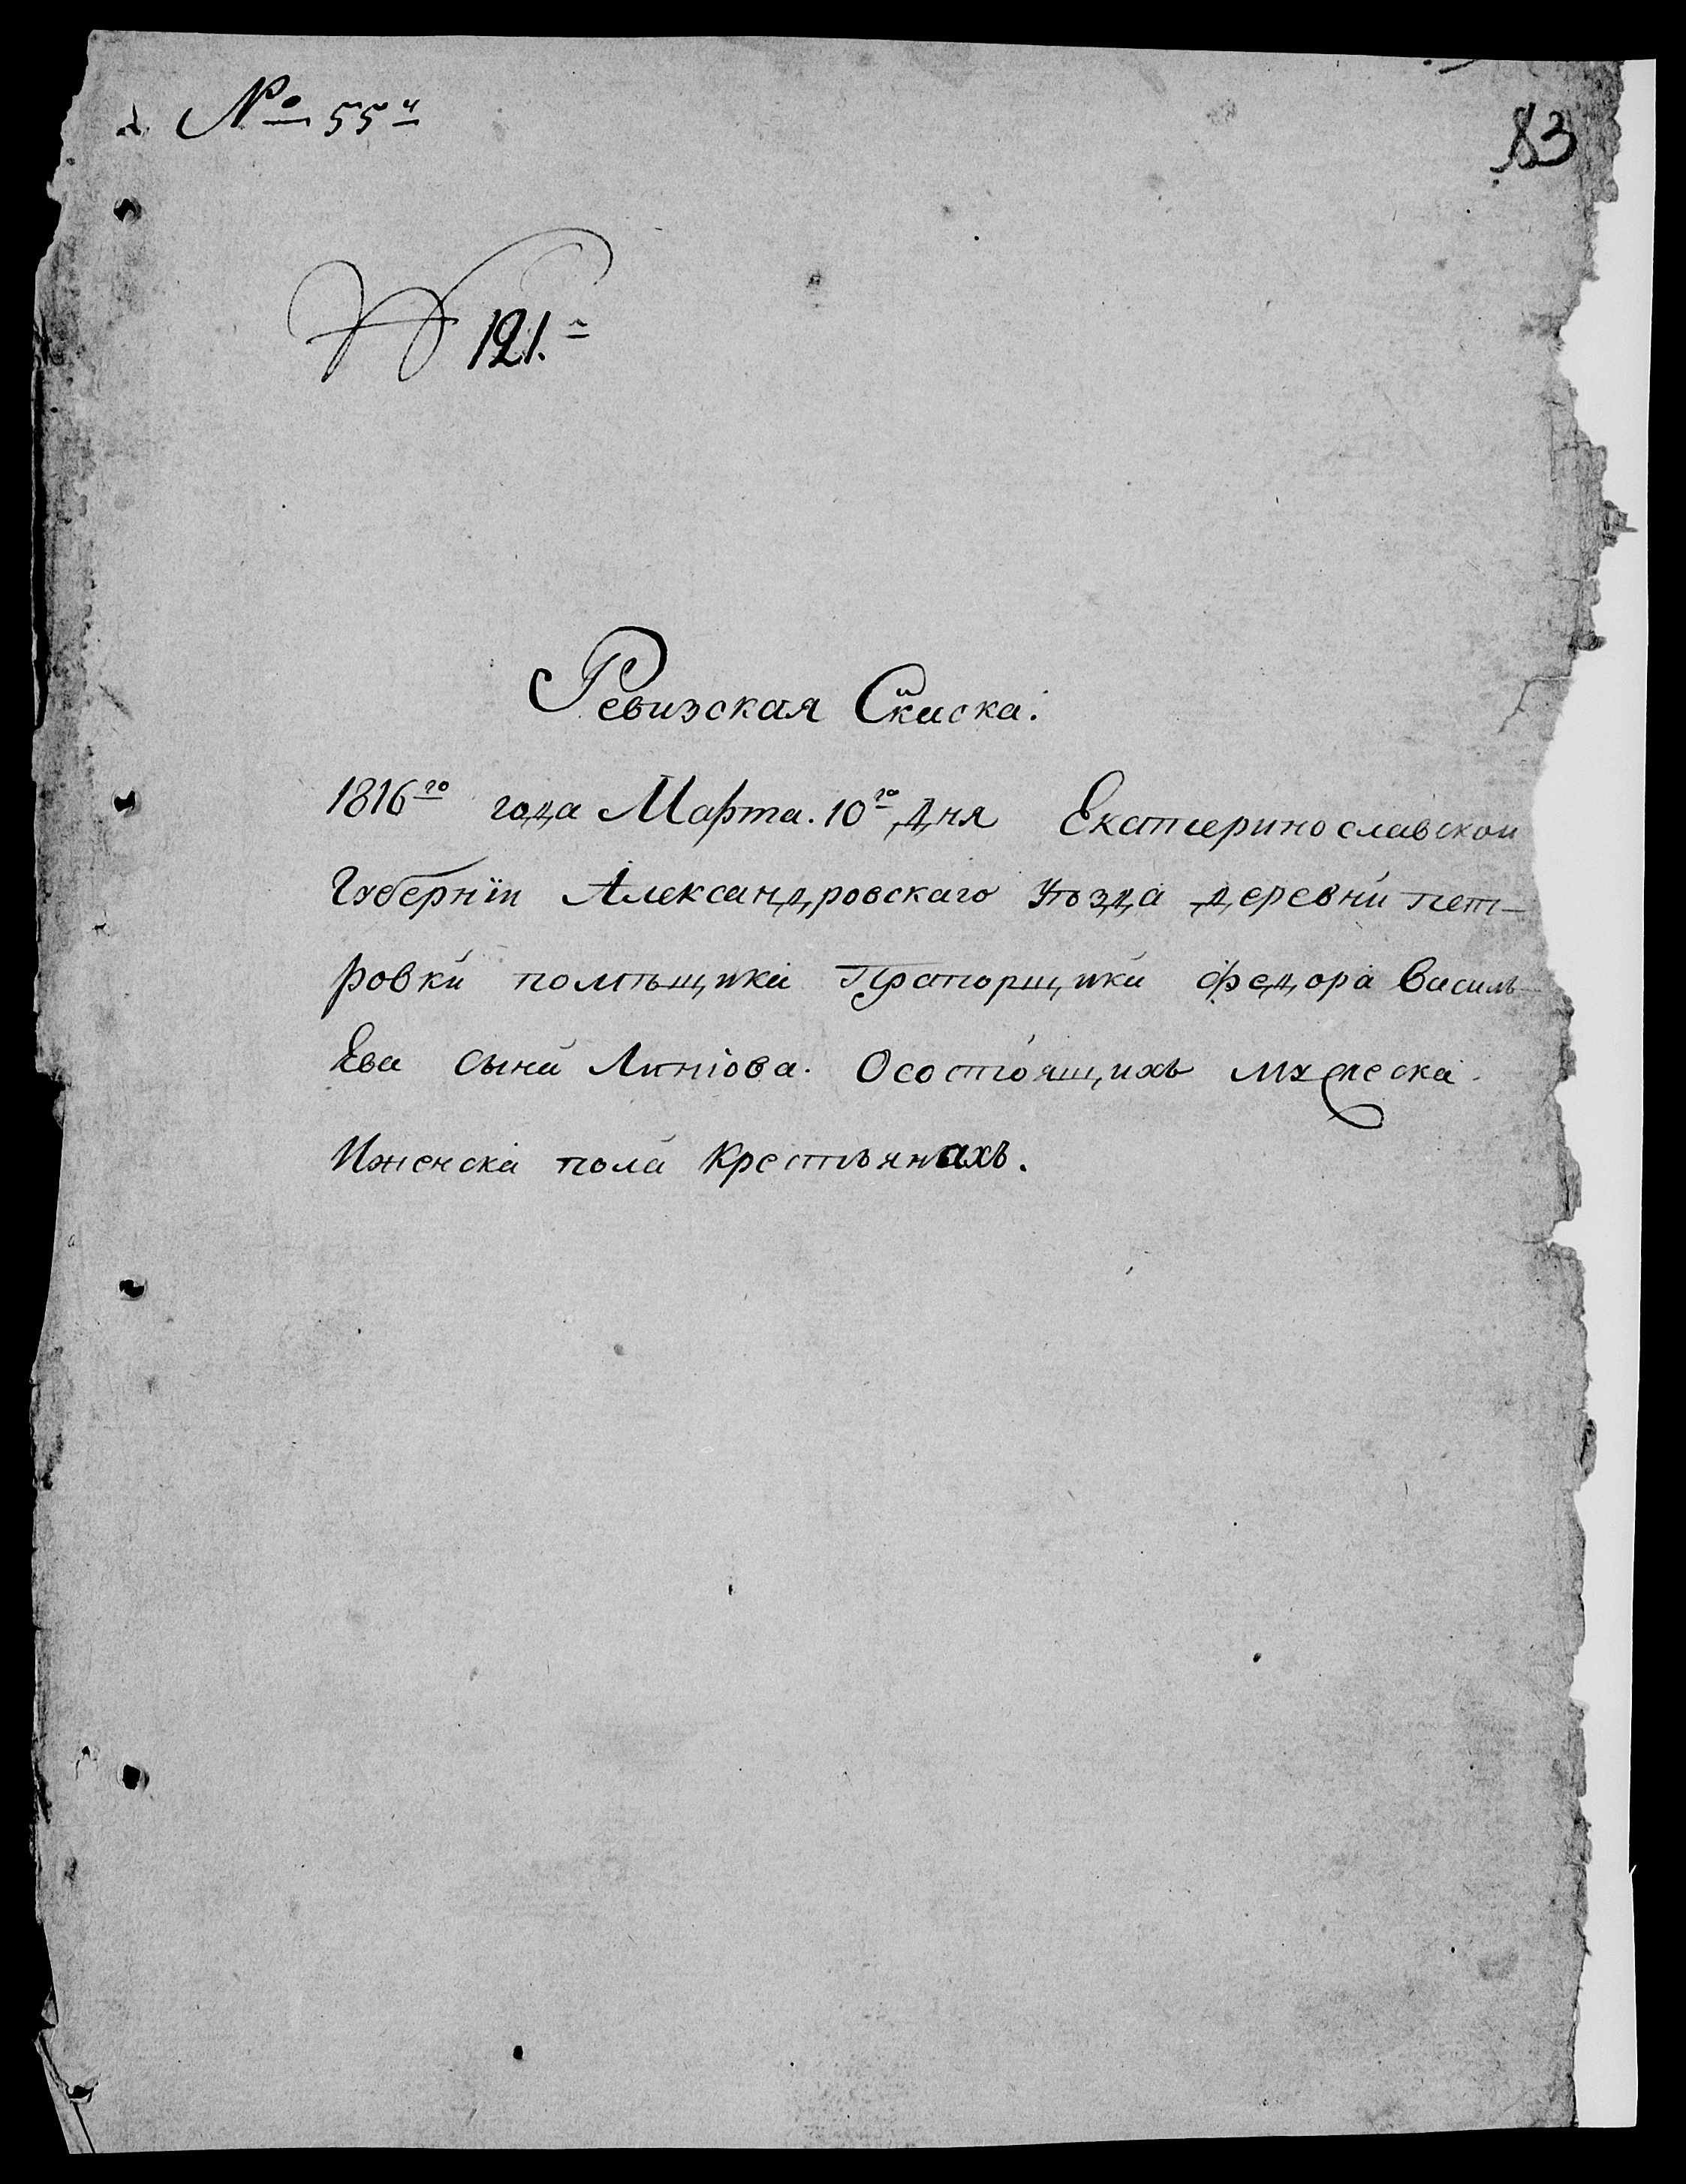 № 55й
83
№ 121.
Ревизская Скаска.
1816го года Марта. 10го дня Екатеринославскои
Губернїи Александровскаго уѣзда деревни пет-
ровки помѣщика Прапорщика федора Василь-
Ева сына Линіова. Осостоящихъ мужеска.
Иженска пола крестьянахъ.